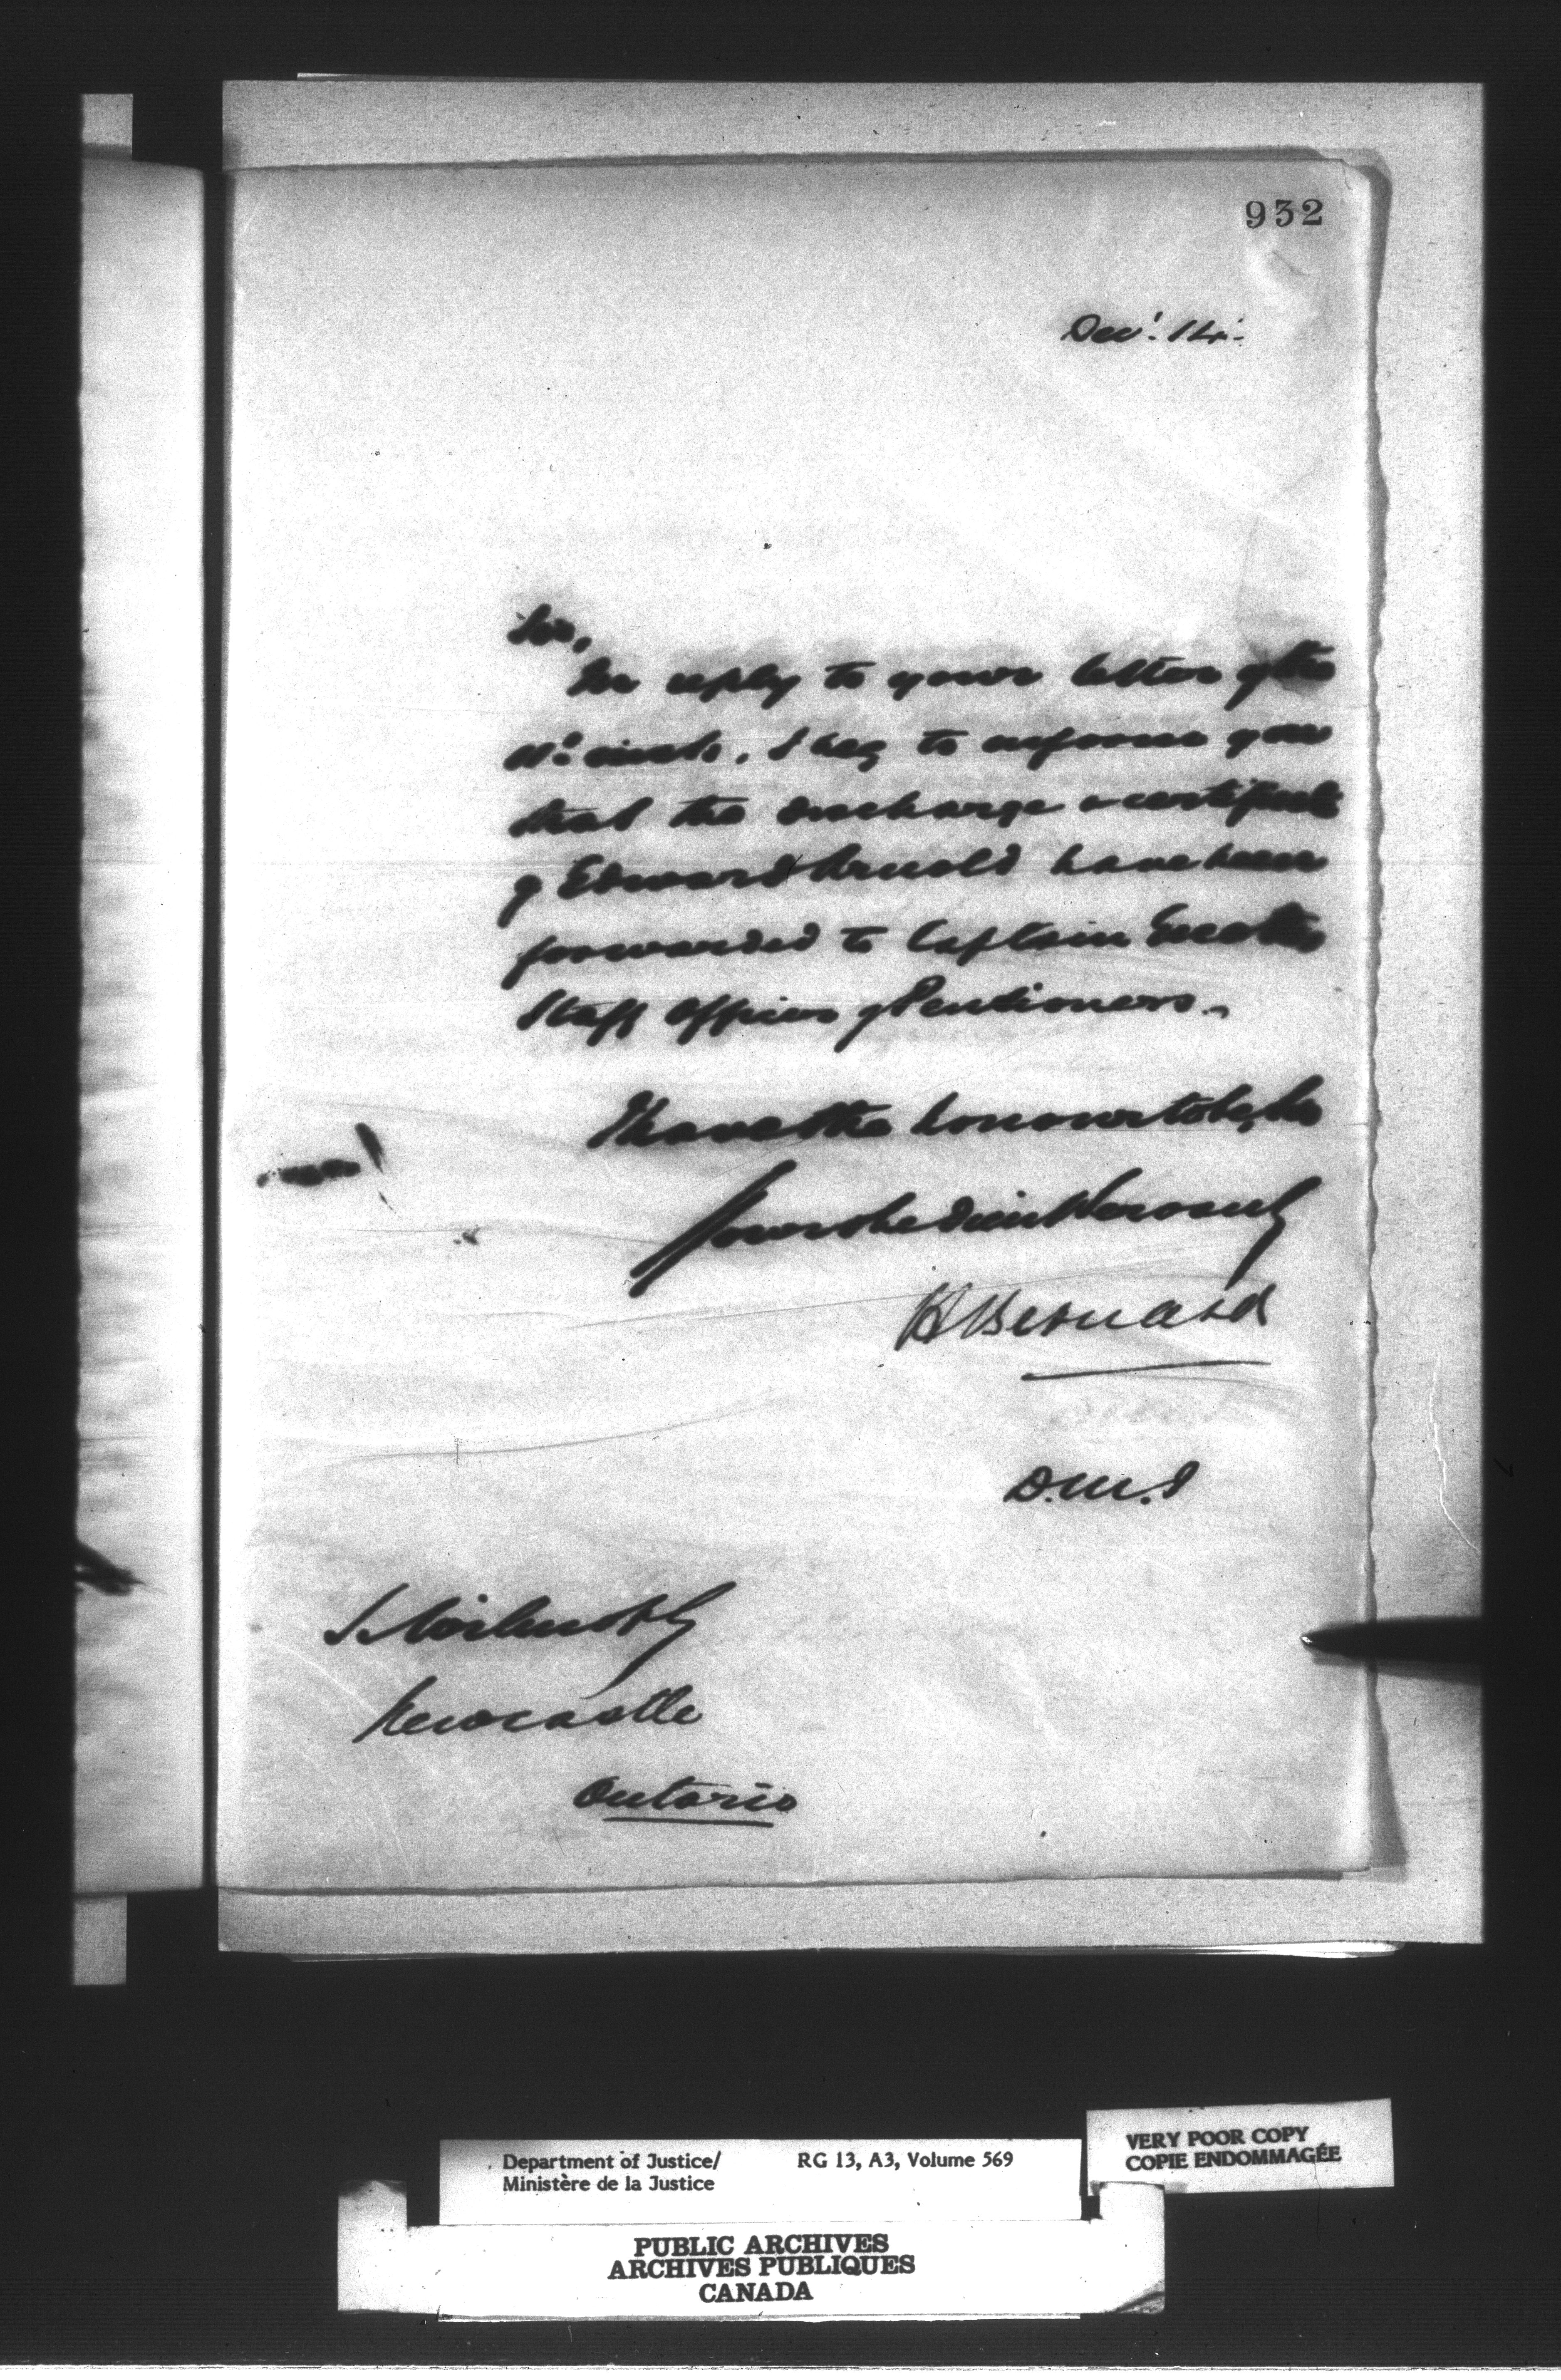 932
Decr. 14.
Sir,
In reply to your letter of the
11th inst., I beg to inform you
that the discharge & certificate
of Edward Arnold have been
forwarded to Captain
Staff Officer of Pensioners.
I have the honour to be, Sir
Your obedient Servant
H Bernard
D.M.J
Newcastle
Ontario
Department of Justice/
Ministère de la Justice
RG 13, A3, Volume 569
VERY POOR COPY
COPIE ENDOMMAGÉE
PUBLIC ARCHIVES
ARCHIVES PUBLIQUES
CANADA